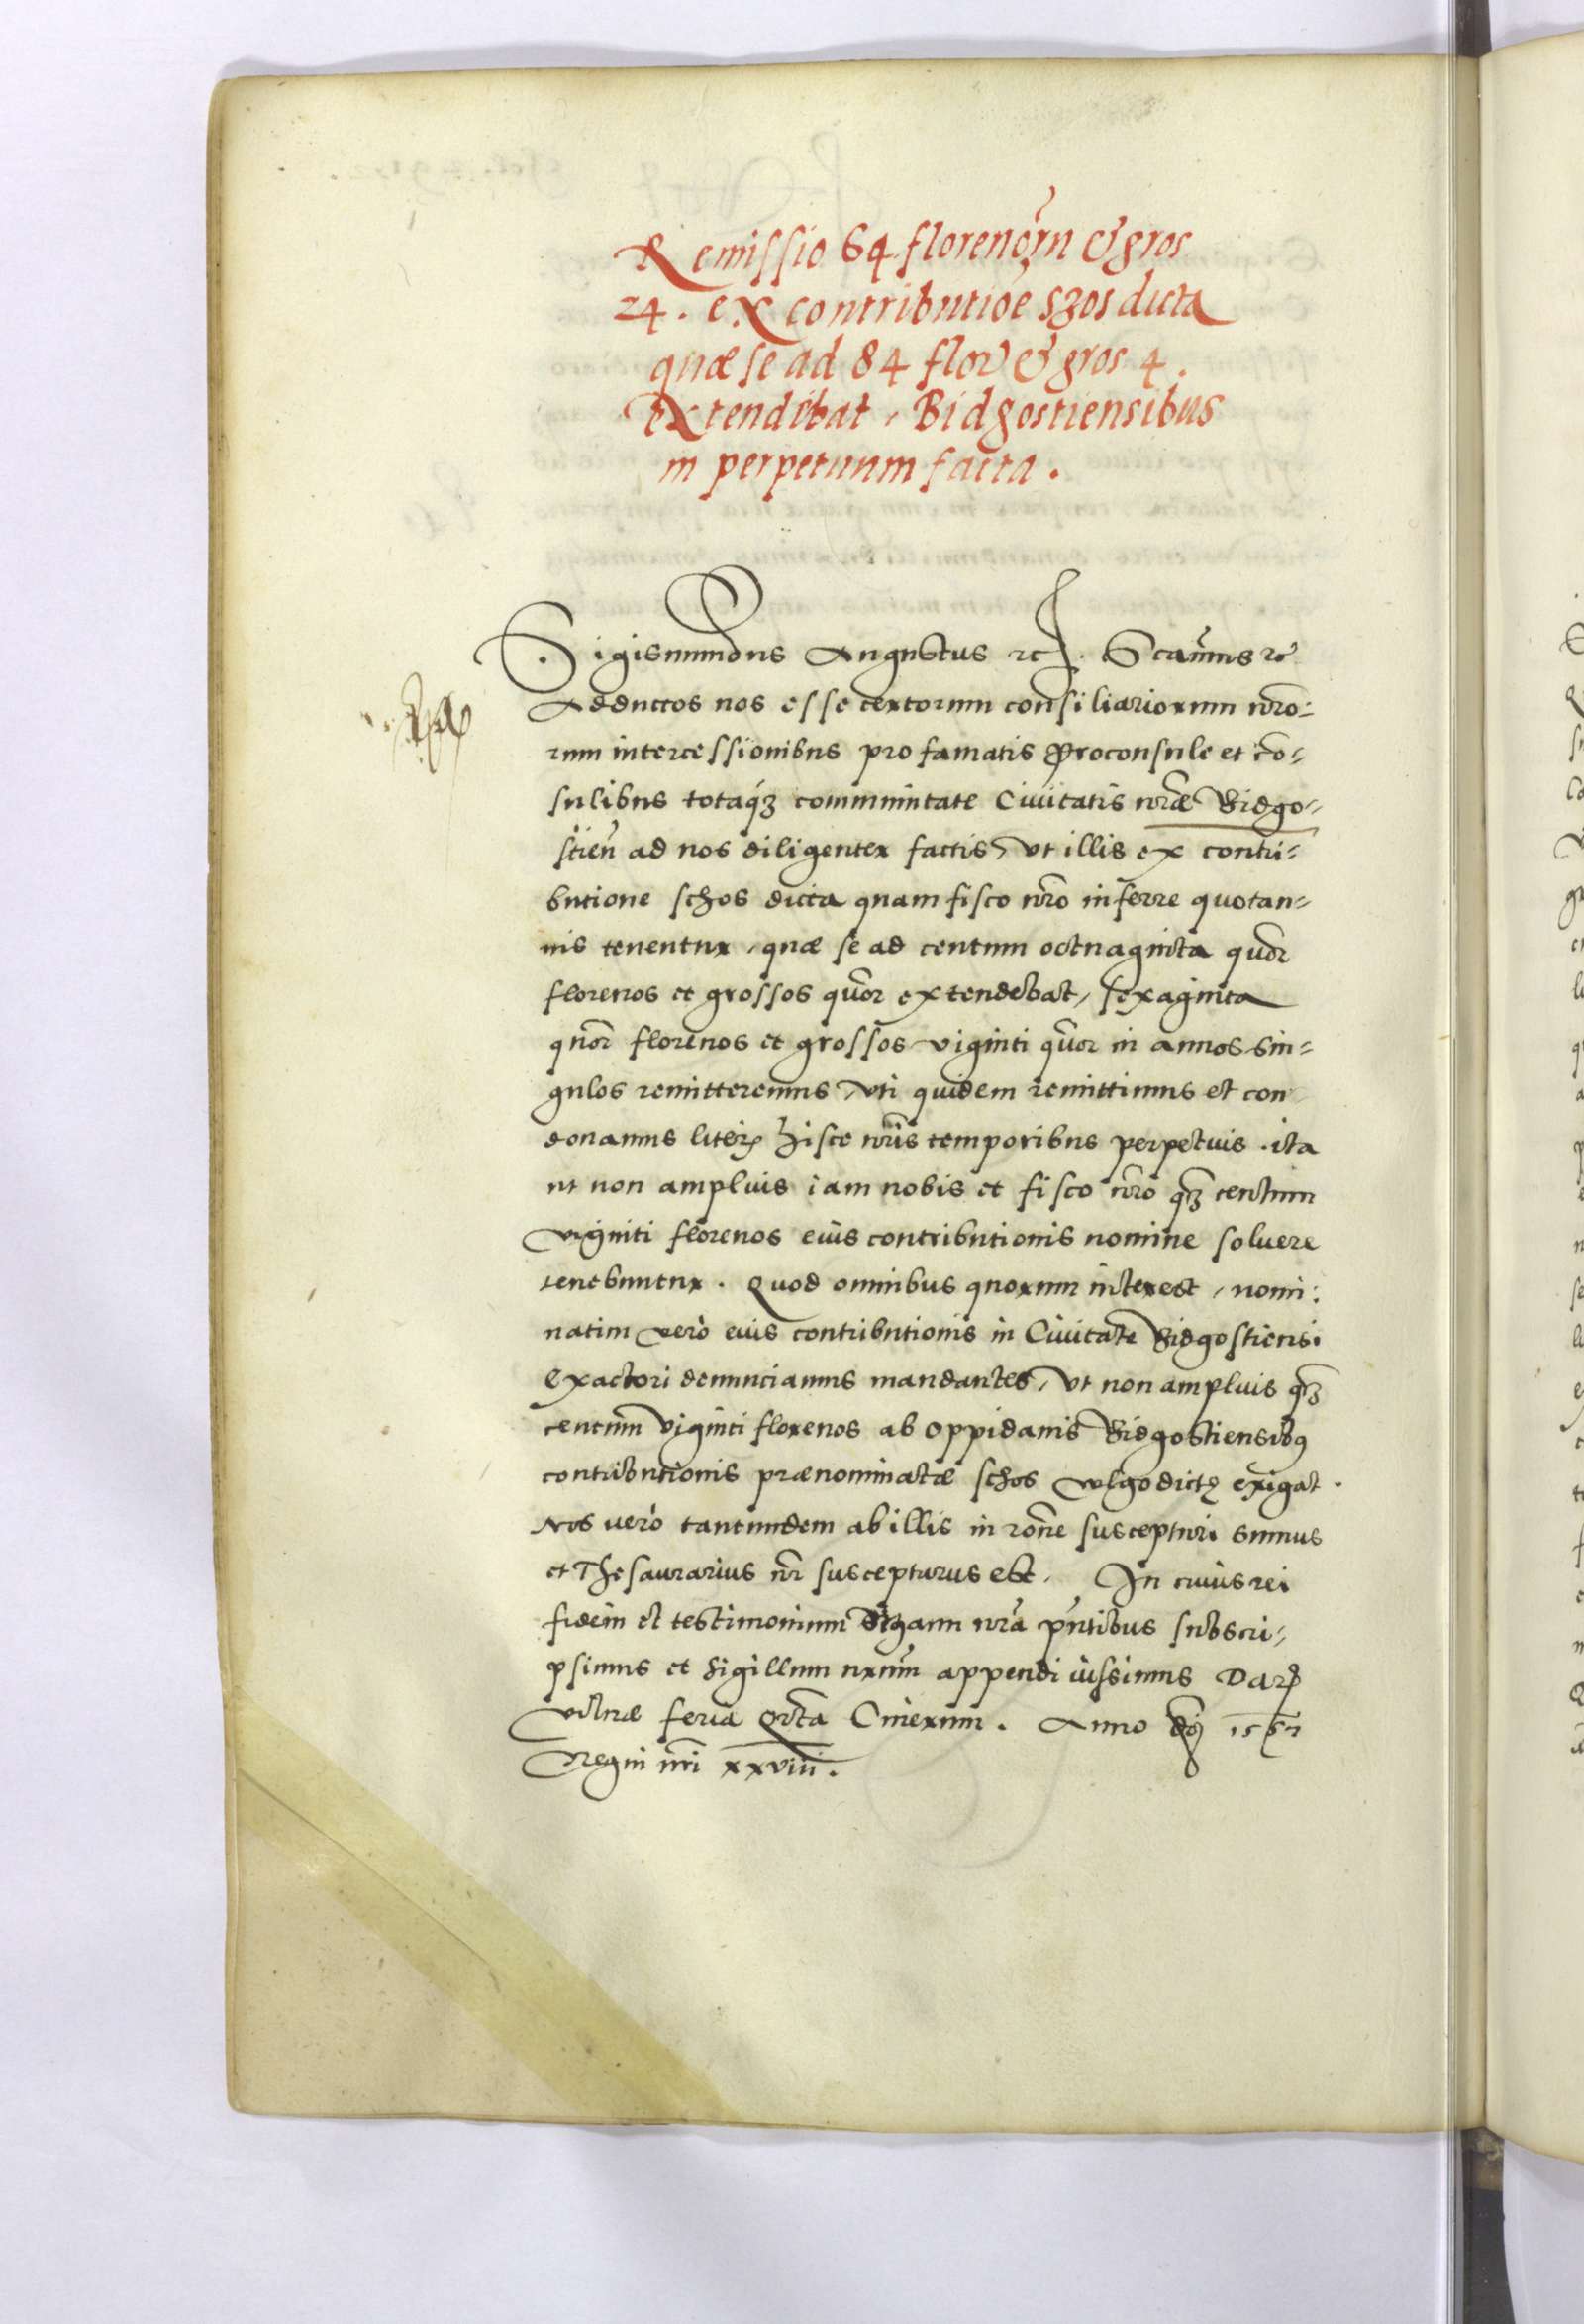 Remissio 64 florenor̃m & gros
24. ex contributiõe szos dicta
quæ se ad 84 flor & gros 4.
extendebat, Bidgostiensibus
in perpetuum facta.
Sigismundus Augustus etc. S cam̃us etc
Adductos nos esse certorum consiliariorum nr̃o:
rum intercessionibus pro famatis Proconsule et cõ-
sulibus totaq́ȝ communitate Ciuitatis nr̃æ Bidgo-
stien̄ ad nos diligenter factis, vt illis ex contri-
butione schos dicta quam fisco nr̃o inferre quotan-
nis tenentur, quæ se ad centum octuaginta quor̃
florenos et grossos quor̃ extendebat, sexaginta
quor̃ florenos et grossos viginti quor̃ in annos sin-
gulos remitteremus, vti quidem remittimus et con
donamus literȷ hisce nr̃is temporibus perpetuis . ita
ut non ampluis iam nobis et fisco nr̃o qm̃ centum
viginti florenos eius contributionis nomine soluere
tenebuntur . Quod omnibus quorum interest, nomi:
natim verò eius contributionis in Ciuitate Bidgostiensi
exactori denunciamus mandantes, vt non ampluis qm̃
centum viginti florenos ab oppidanis Bidgostiensibꝰ
contributionis prænominatæ schos vulgo dictę exigat .
Nos verò tantundem ab illis in rõne suscepturi sumus
et Thesaurarius nr̃ suscepturus est. In cuius rei
fidem et testimonium manu nr̃a pn̄tibus subscri-
psimus et sigillum nr̃um appendi iussimus Datȷ
Vilnæ feria qr̃ta Cinerum. Anno dn̄j
Regni nr̃i xxviii.